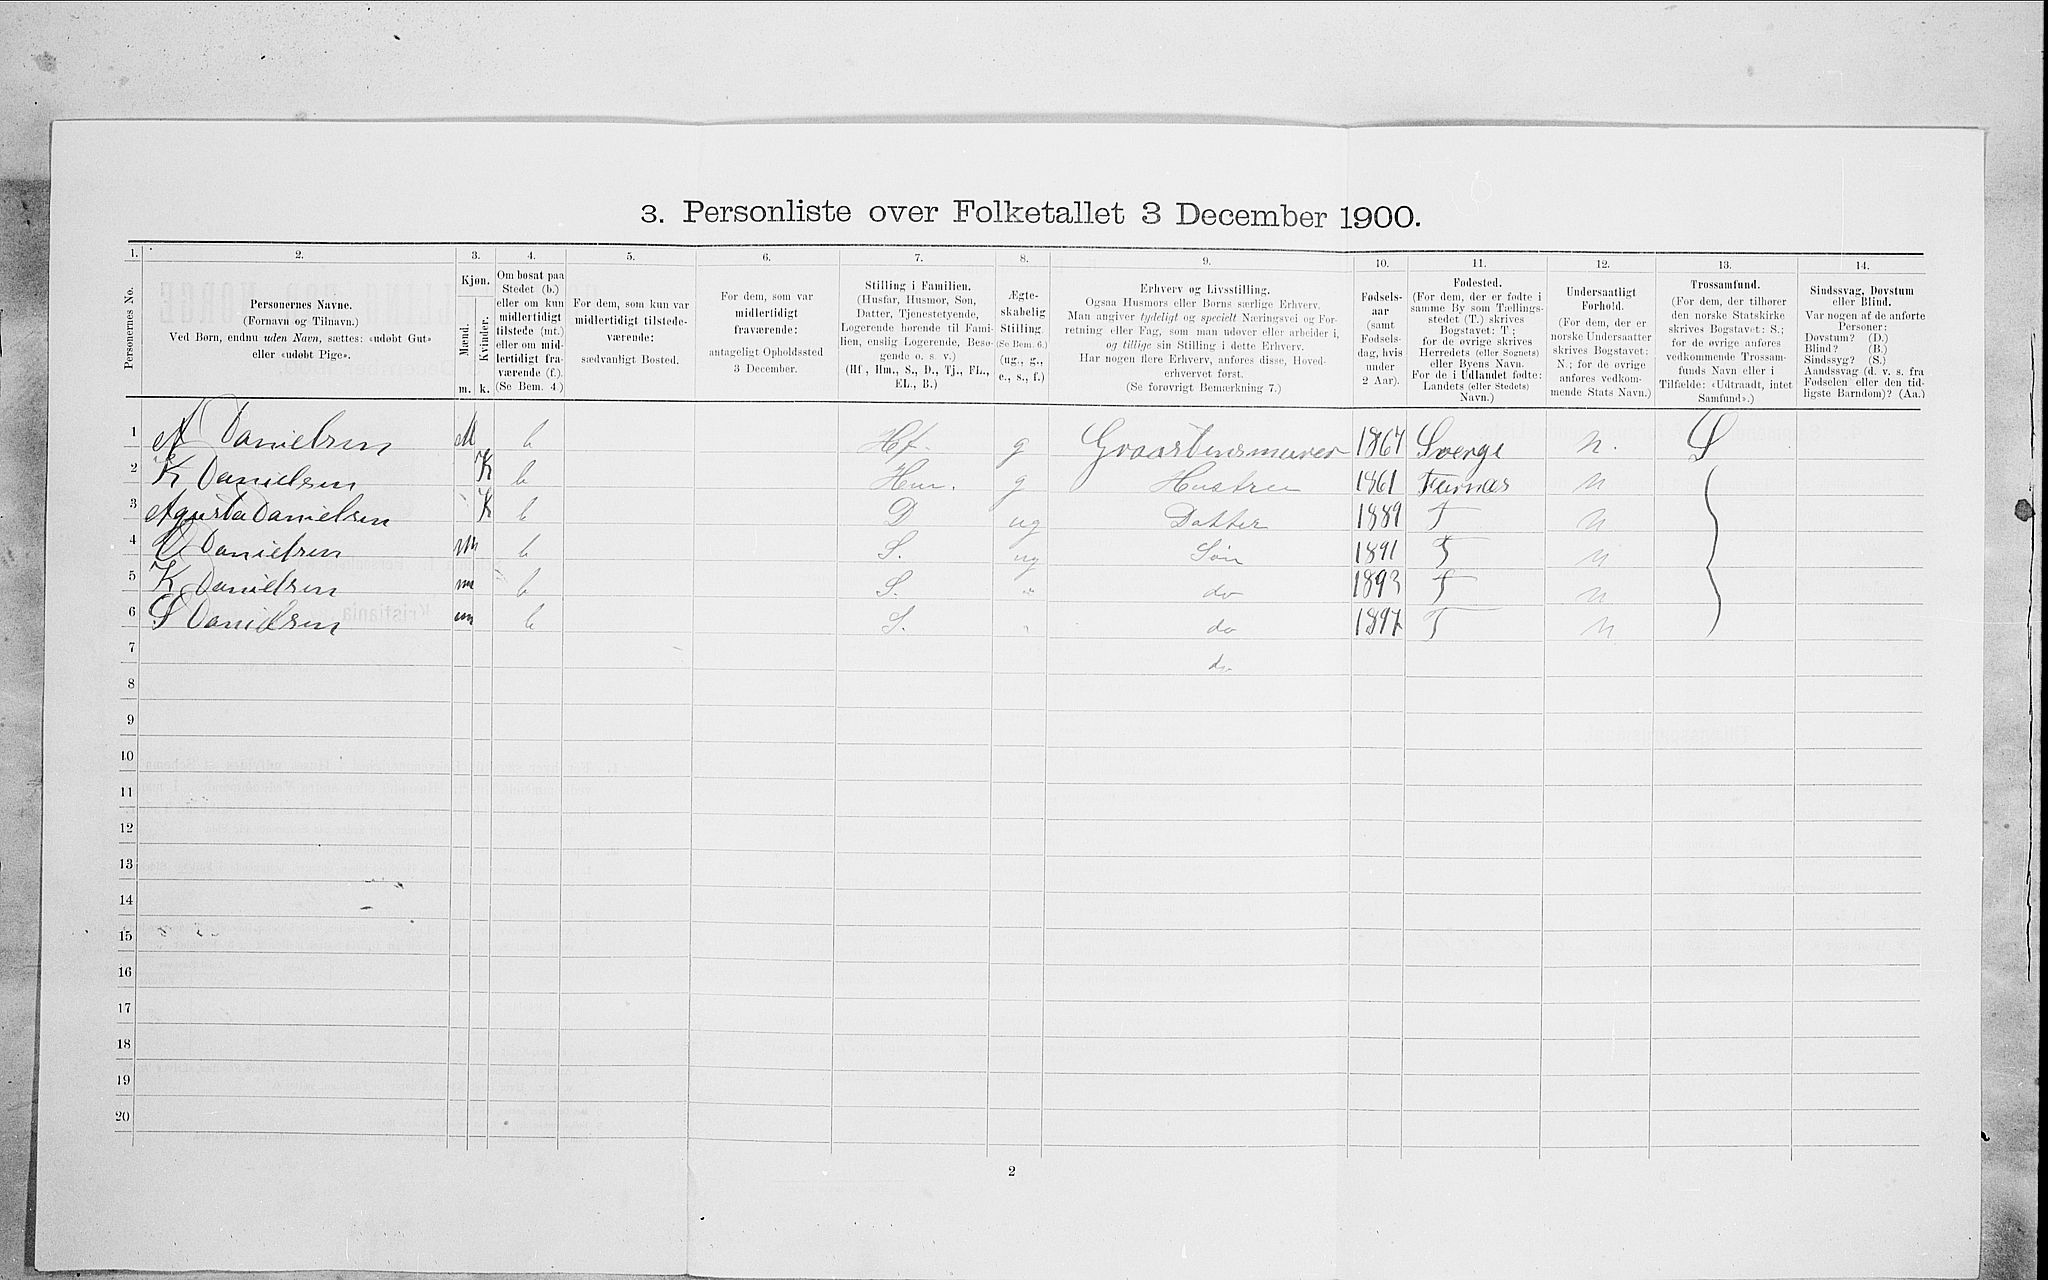 3. Personliste over Folketallet 3 December 1900.
1. 2. 3. 4. 5. 6. 7. 8. 9. 10. 11. 12. 13. 14.
Personernes No.
Personernes Navne.
(Fornavn og Tilnavn.)
Ved Børn, endnu uden Navn, sættes: «udøbt Gut»
eller «udøbt Pige».
Kjøn.
Mænd.
Kvinder.
m. k.
Om bosat paa
Stedet (b.)
eller om kun
midlertidigt
tilstede (mt.)
eller om mid-
lertidigt fra-
værende (f.).
(Se Bem. 4.)
For dem, som kun var
midlertidigt tilstede-
værende:
sædvanligt Bosted.
For dem, som var
midlertidigt
fraværende:
antageligt Opholdssted
3 December.
Stilling i Familien.
(Husfar, Husmor, Søn,
Datter, Tjenestetyende,
Logerende hørende til Fami-
lien, enslig Logerende, Besø-
gende o. s. v.)
(Hf., Hm., S., D., Tj., FL.,
EL., B.)
Ægte-
skabelig
Stilling.
(Se Bem. 6.)
(ug., g.,
e., s., f.)
Erhverv og Livsstilling.
Ogsaa Husmors eller Børns særlige Erhverv.
Man angiver tydeligt og specielt Næringsvei og For-
retning eller Fag, som man udøver eller arbeider i,
og tillige sin Stilling i dette Erhverv.
Har nogen flere Erhverv, anføres disse, Hoved-
erhvervet først.
(Se forøvrigt Bemærkning 7.)
Fødsels-
aar
(samt
Fødsels-
dag, hvis
under
2 Aar).
Fødested.
(For dem, der er fødte i
samme By som Tællings-
stedet (T.) skrives
Bogstavet: T;
for de øvrige skrives
Herredets (eller Sognets)
eller Byens Navn.
For de i Udlandet fødte:
Landets (eller Stedets)
Navn.)
Undersaatligt
Forhold.
(For dem, der er
norske Undersaatter
skrives Bogstavet:
N.; for de øvrige
anføres vedkom-
mende Stats Navn.)
Trossamfund.
(For dem, der tilhører
den norske Statskirke
skrives Bogstavet: S.;
for de øvrige anføres
vedkommende Trossam-
funds Navn eller i
Tilfælde: «Udtraadt, intet
Samfund».)
Sindssvag, Dovstum
eller Blind.
Var nogen af de anførte
Personer:
Dovstum? (D.)
Blind? (B.)
Sindssyg? (S.)
Aandssvag (d. v. s. fra
Fødselen eller den tid-
ligste Barndom)? (Aa.)
1 A Danielsen M b Hf. g Graastensmurer 1867 Sverge n. S
2 K Danielsen K b Hm. g Hustru 1861 Furnæs n
3 Agusta Danielsen K b D ug Datter 1889 T n
4 Danielsen m b S. ug Søn 1891 T n
5 K Danielsen m b S. " do 1893 T n
6 S Danielsen m b S. do 1897 T n
7 do
8
9
10
11
12
13
14
15
16
17
18
19
20
2